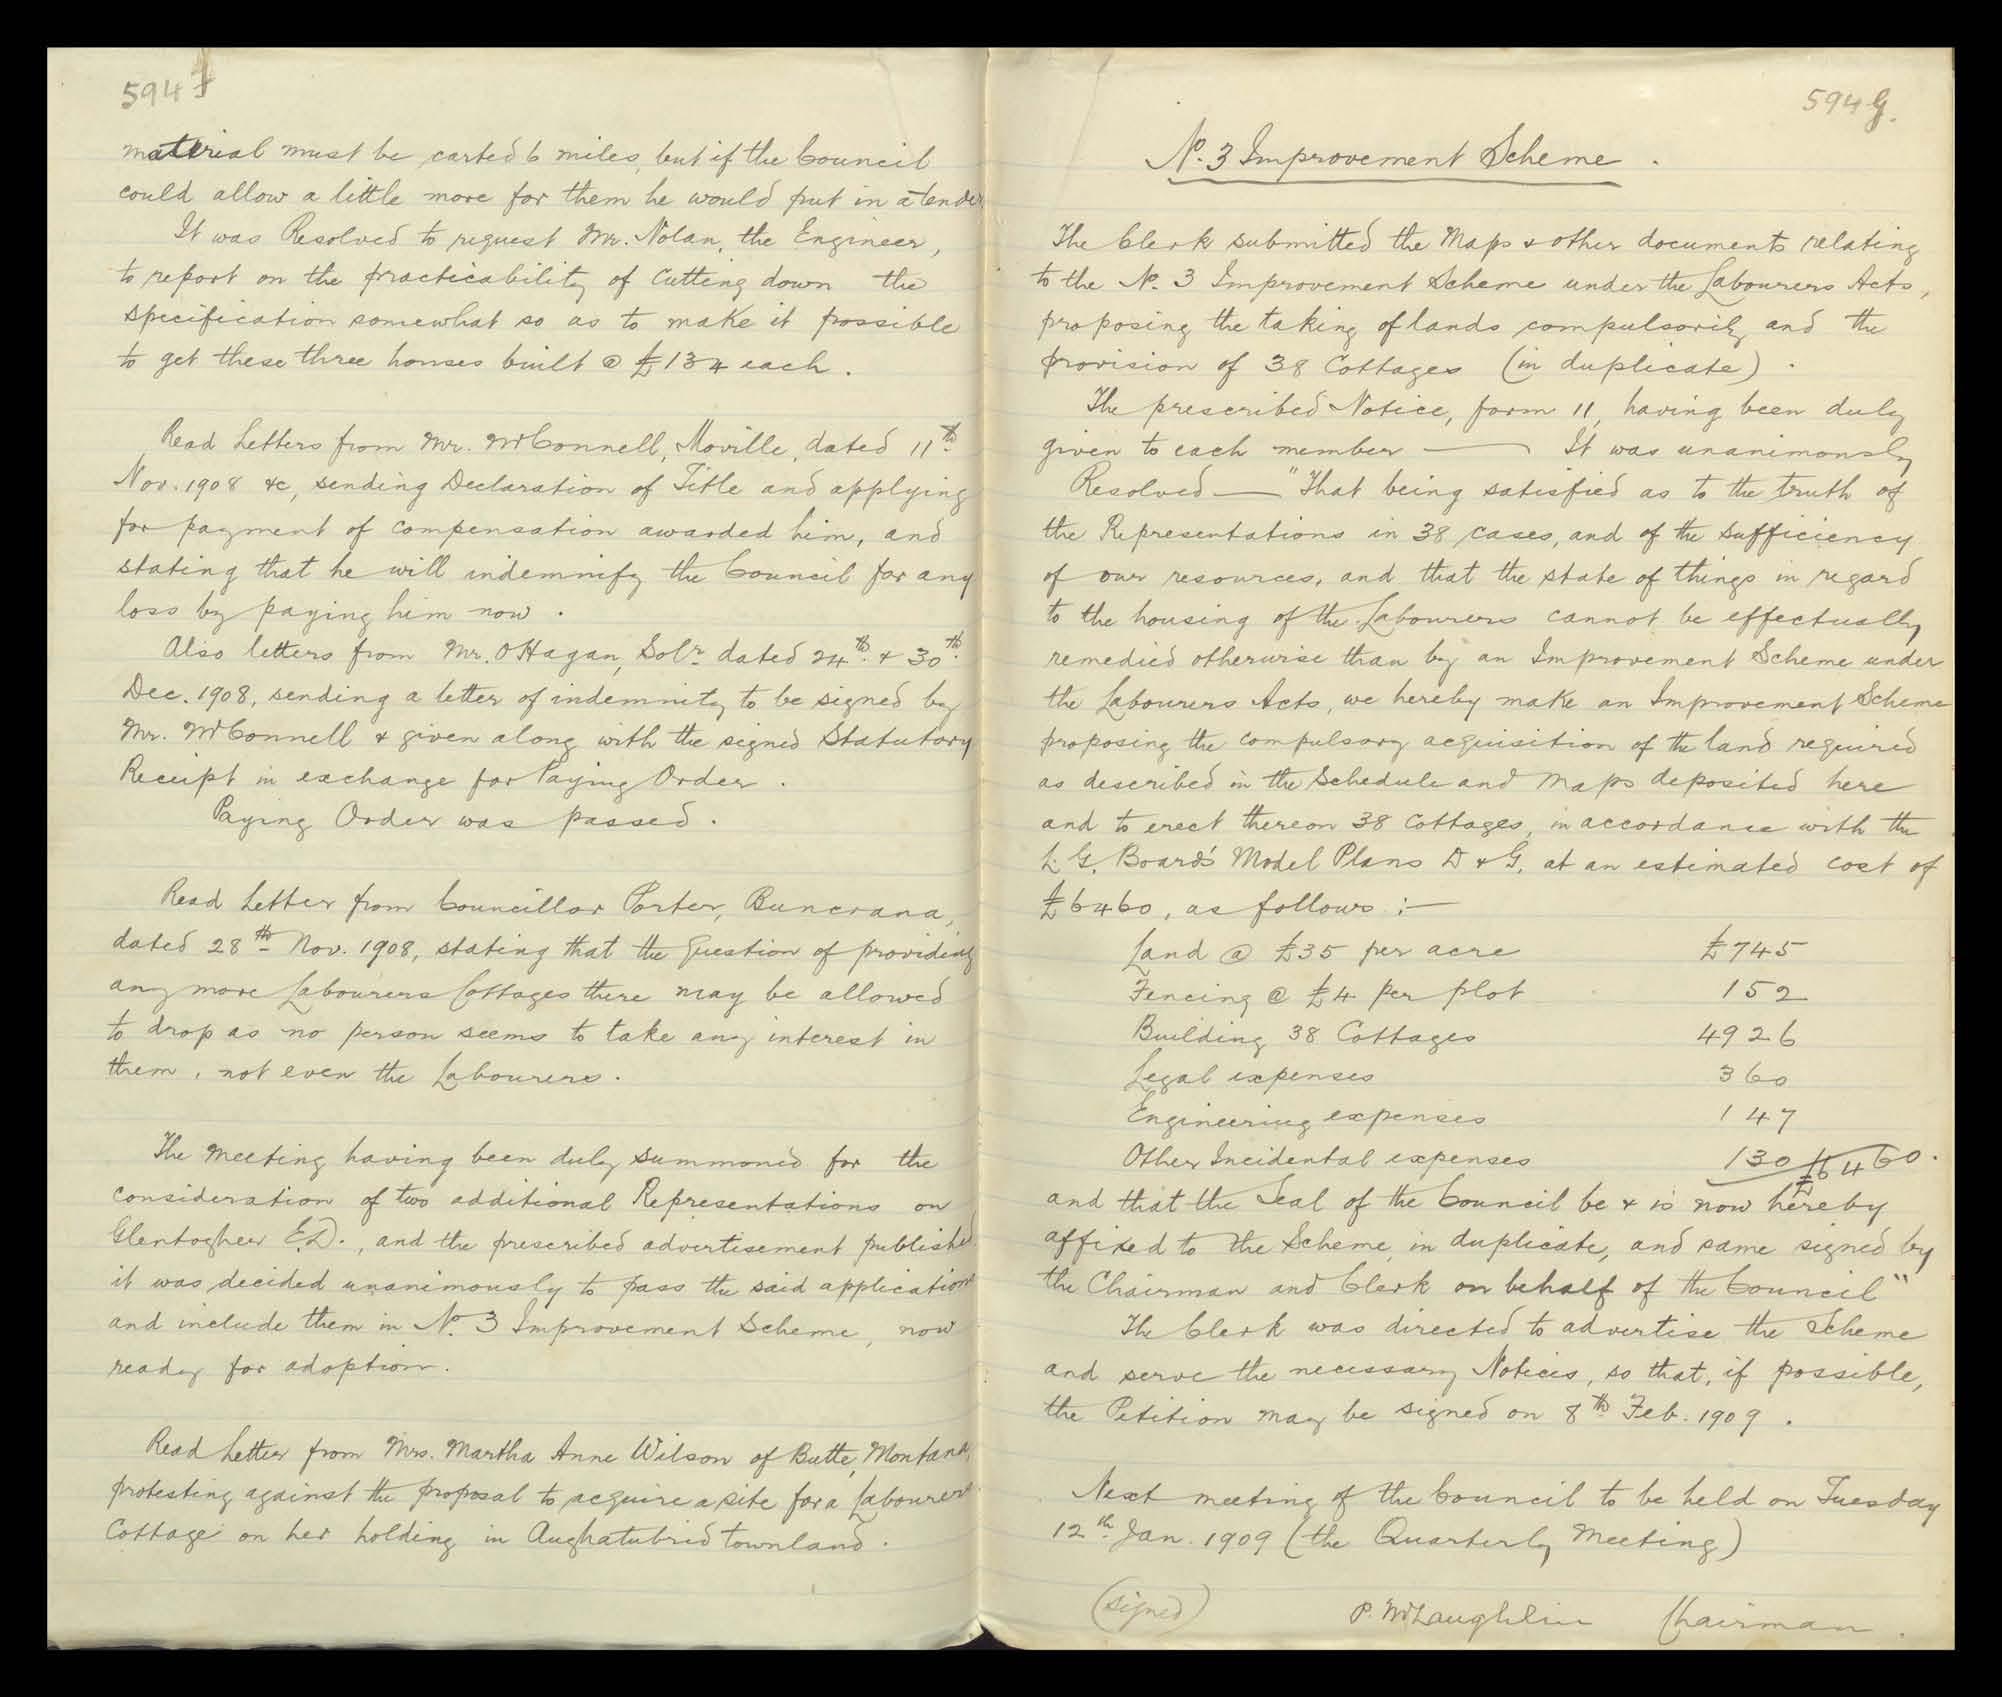 594 f
material must be carted 6 miles, but if the Council
could allow a little more for them he would put in a tender
It was Resolved to request Mr. Nolan, the Engineer,
to report on the practicability of cutting down the
specification somewhat so as to make it possible
to get these three houses built @ £134 each.
Read Letters from Mr. McConnell, Moville, dated 11th
Nov. 1908 &c, sending Declaration of Title and applying
for payment of compensation awarded him, and
stating that he will indemnify the Council for any
loss by paying him now.
Also letters from Mr. O'Hagan, Solr. dated 24th & 30th
Dec. 1908, sending a letter of indemnity to be signed by
Mr. McConnell & given along with the signed Statutory
Receipt in exchange for Paying Order.
Paying Order was passed.
Read Letter from Councillor Porter, Buncrana,
dated 28th Nov. 1908, stating that the question of providing
any more Labourers Cottages there may be allowed
to drop as no person seems to take any interest in
them, not even the Labourers.
The Meeting having been duly summoned for the
consideration of two additional Representations on
Glentogher E.D., and the prescribed advertisement published
it was decided unanimously to pass the said applications
and include them in No. 3 Improvement Scheme, now
ready for adoption.
Read Letter from Mrs. Martha Anne Wilson of Butte, Montana,
protesting against the proposal to acquire a site for a Labourers
Cottage on her holding in Aughatubrid townland.
594 G.
No. 3 Improvement Scheme.
The Clerk submitted the Maps & other documents relating
to the No. 3 Improvement Scheme under the Labourers Acts,
proposing the taking of lands compulsorily and the
provision of 38 Cottages (in duplicate).
The prescribed Notice, form 11, having been duly
given to each member — It was unanimously
Resolved — "That being satisfied as to the truth of
the Representations in 38 cases, and of the sufficiency
of our resources, and that the state of things in regard
to the housing of the Labourers cannot be effectually
remedied otherwise than by an Improvement Scheme under
the Labourers Acts, we hereby make an Improvement Scheme
proposing the compulsory acquisition of the land required
as described in the Schedule and Maps deposited here
and to erect thereon 38 Cottages, in accordance with the
L. G. Board's Model Plans D & G. at an estimated cost of
£6460, as follows :—
Land @ £35 per acre £745
Fencing @ £4 per plot 152
Building 38 Cottages 4926
Legal expenses 360
Engineering expenses 147
Other Incidental expenses 130 £6460.
and that the Seal of the Council be & is now hereby
affixed to the Scheme, in duplicate, and same signed by
the Chairman and Clerk on behalf of the Council"
The Clerk was directed to advertise the Scheme
and serve the necessary Notices, so that, if possible,
the Petition may be signed on 8th Feb. 1909.
Next meeting of the Council to be held on Tuesday
12th Jan. 1909 (the Quarterly Meeting)
(signed) P. McLaughlin Chairman.